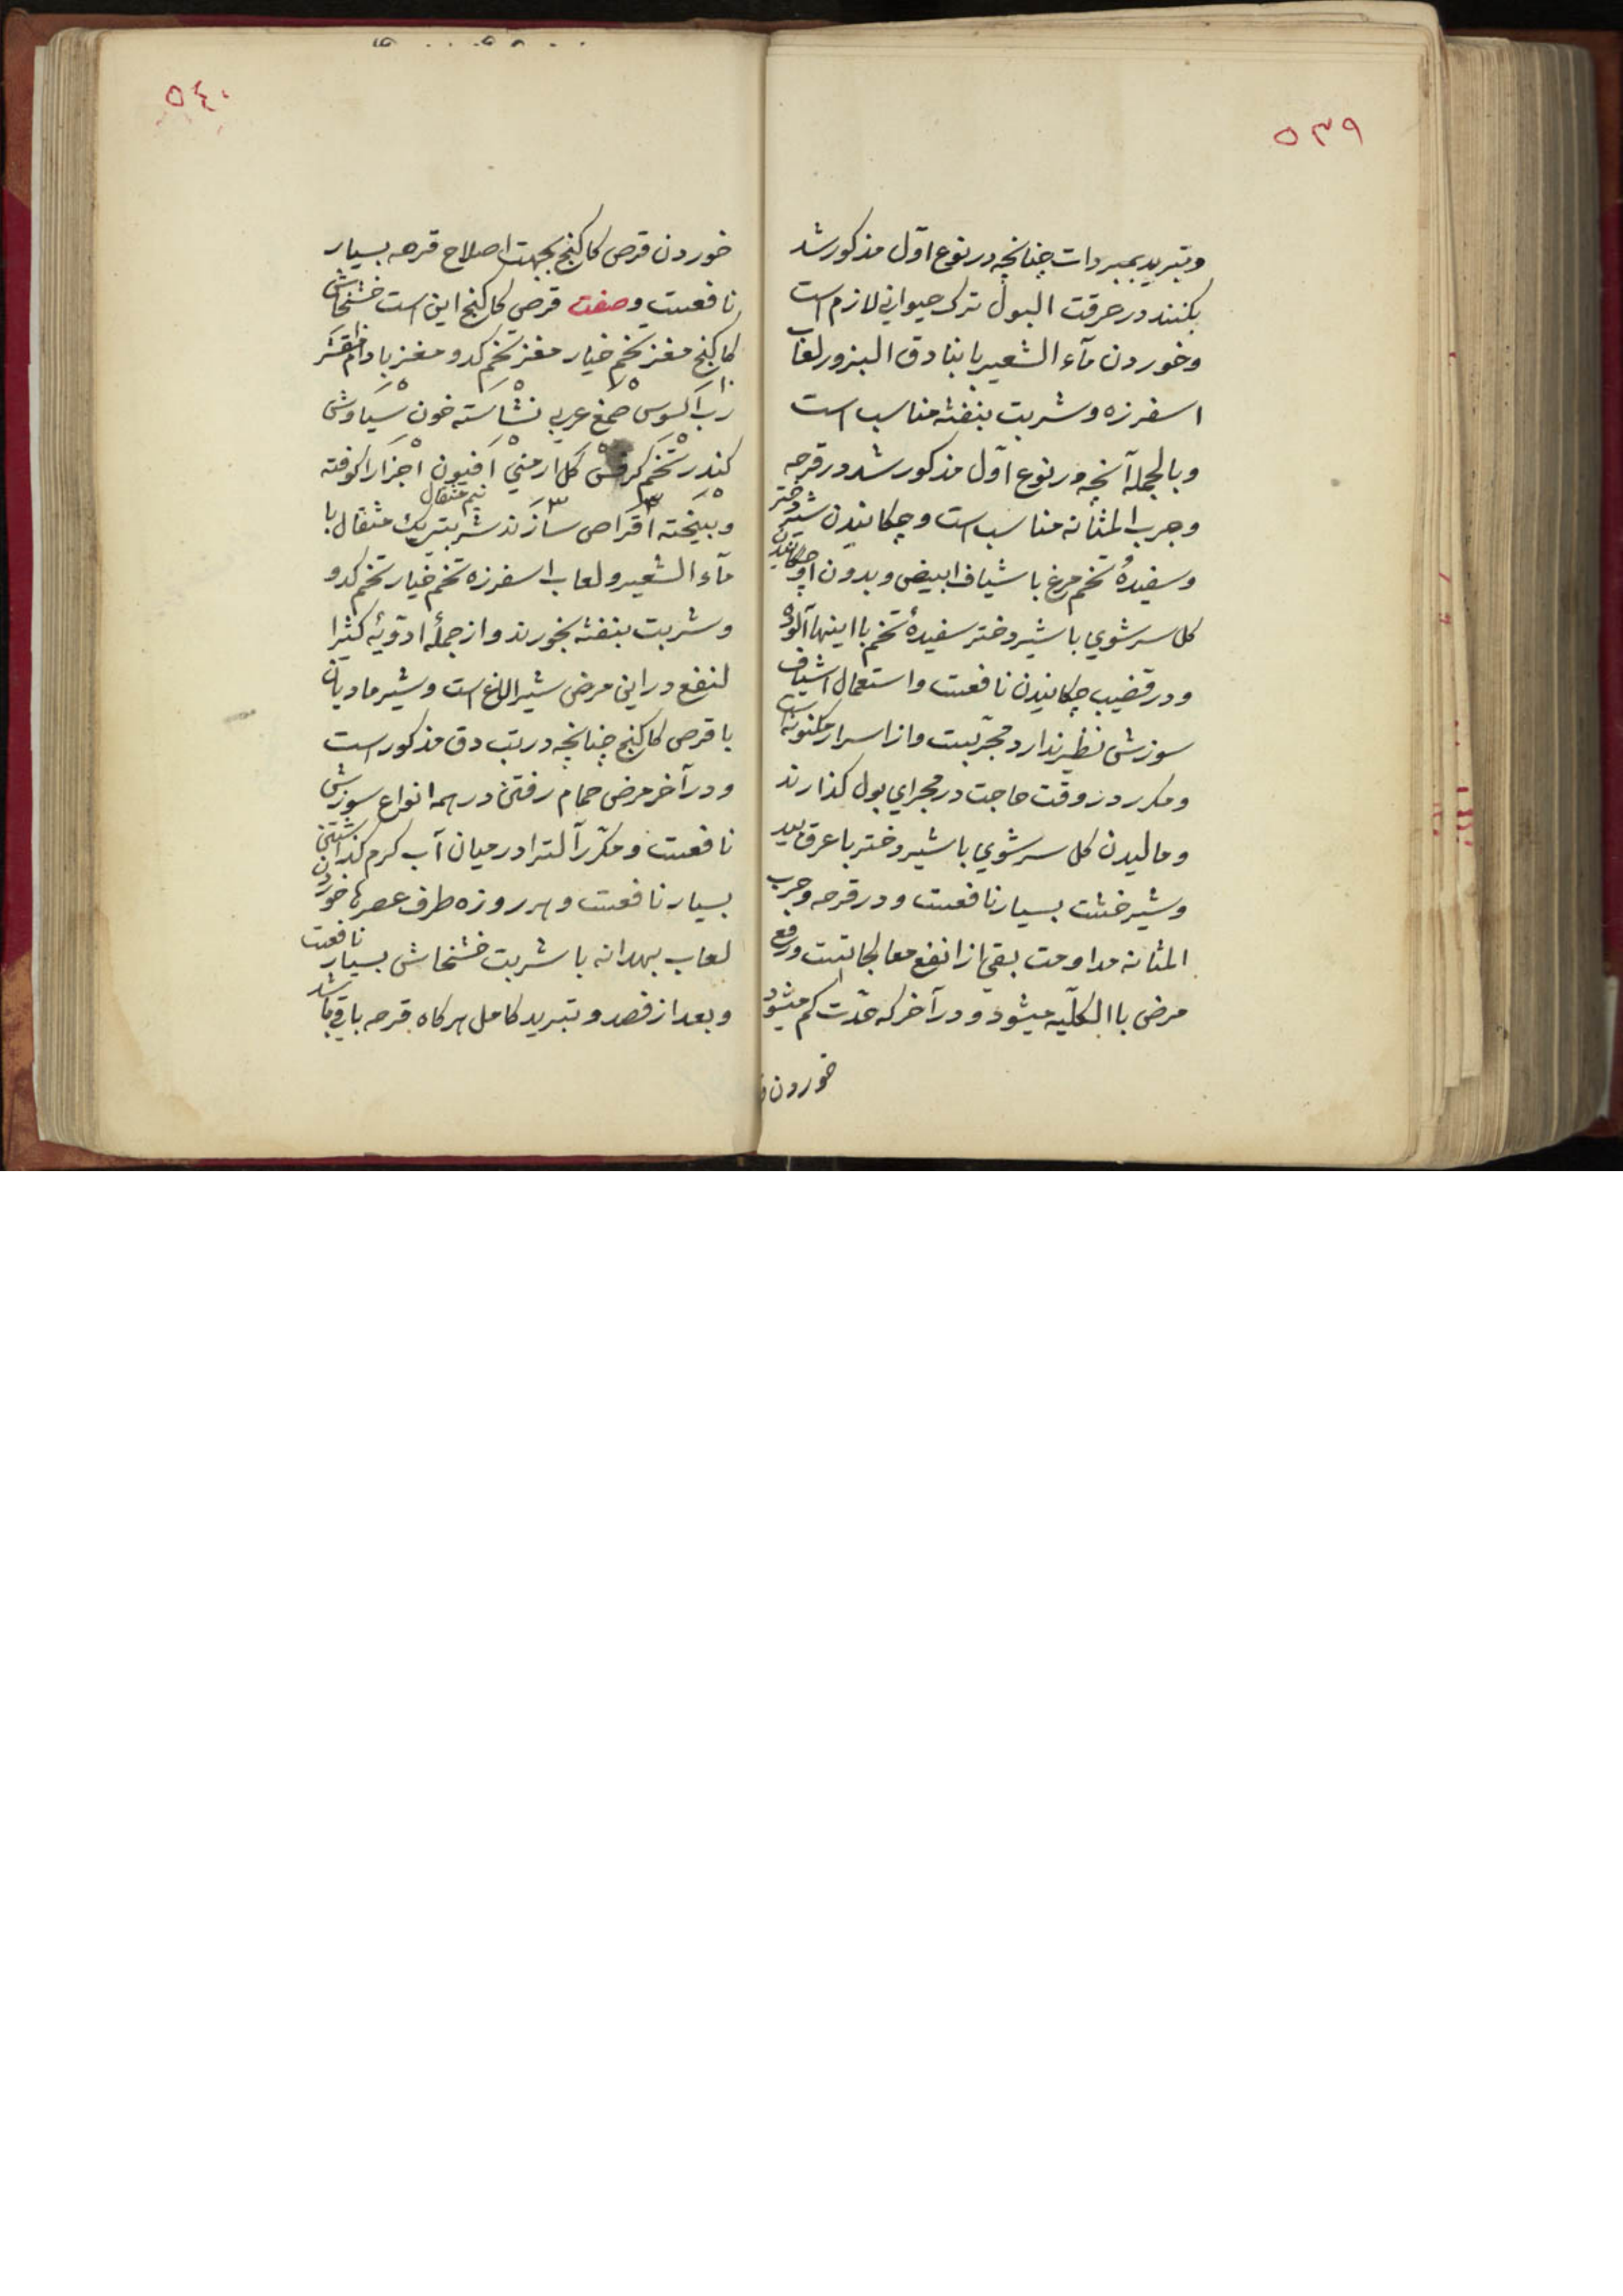 ٥٣٩
وتبرید بمبردات چنانچه در نوع اوّل مذکور شد
بکنند در حرقت البول ترک حیوانی لازم است
وخوردن مآء الشعیر با بنادق البزور لعاب
اسفرزه وشربت بنفشه مناسب است
وبالجمله آنچه در نوع اوّل مذکور شد در قرحه
وجرب المثانه مناسب است وچکانیدن شیر دختر
وسفیدهٔ تخم مرغ با شیاف ابیض وبدون او چکانیدن
کل سرشوی با شیر دختر سفیدهٔ تخم با اینها آلوده
ودر قضیب چکانیدن نافعست واستعمال اشیاف
سوزش نظیر ندارد ومجرّبست واز اسرار مکنونه است
ومکرر در وقت حاجت در مجرای بول کذارند
ومالیدن کل سرشوی با شیر دختر با عرق بید
وشیرخشت بسیار نافعست ودر قرحه وجرب
المثانه مداومت بقی از انفع معالجاتست ورفع
مرض باالکلّیه میشود ودر آخر که حدّت کم میشود
خوردن
٥٤٠
خوردن قرص کاکنج بجهت اصلاح قرحه بسیار
نافعست وصفت قرص کاکنج این است خشخاش
کاکنج مغز تخم خیار مغز تخم کدو مغز بادام مقشر
رب السوس صمغ عربی نشاسته خون سیاوش
کندر تخم کرفس کل ارمنی افیون اجزا را کوفته
نیم مثقال
وبیخته اقراص سازند شربتی یک مثقال با
مآء الشعیر ولعاب اسفرزه تخم خیار تخم کدو
وشربت بنفشه بخورند واز جملهٔ ادویهٔ کثیرا
لنفع در این مرض شیر الاغ است وشیر مادیان
با قرص کاکنج چنانچه در تب دق مذکور است
ودر آخر مرض حمام رفتن در همه انواع سوزش
نافعست ومکرّر آلت را در میان آب کرم کذاشتن
بسیار نافعست وهر روزه طرف عصرها خوردن
لعاب بهدانه با شربت خشخاش بسیار نافعست
وبعد از فصد وتبرید کامل هرکاه قرحه باقی باشد